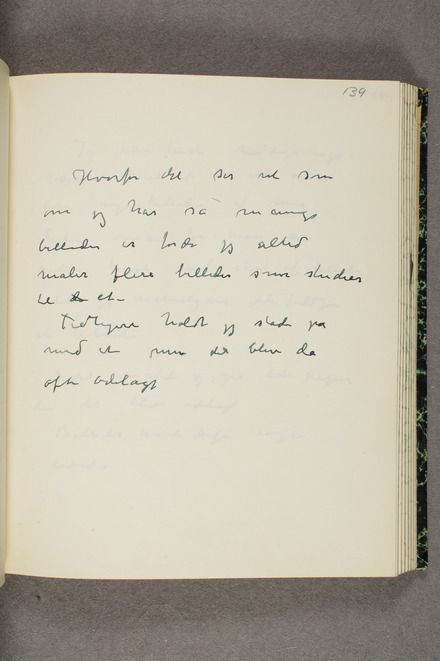 139
Hvorfor det ser ut som
om jeg har så mange
billeder er fordi jeg altid
maler flere billeder som studier
til et
Tidligere holdt jeg stadig på
med et men det blev da
ofte ødelagt